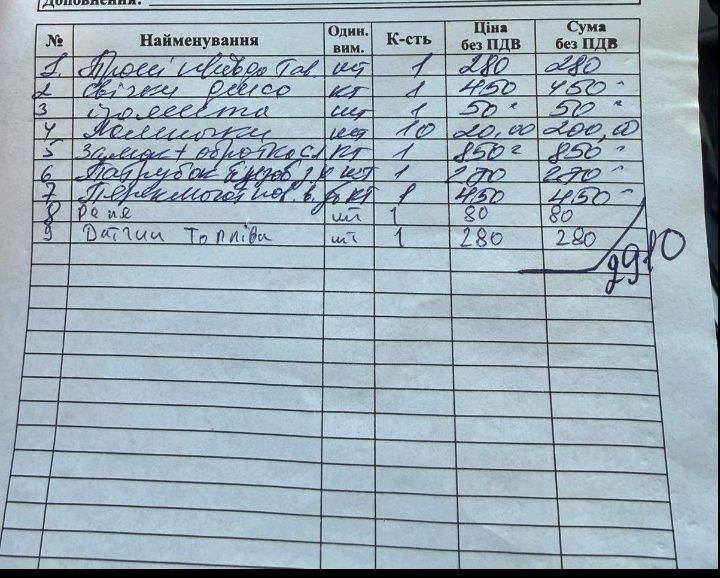 Доповнення:
№ Найменування Один. вим. К-сть Ціна без ПДВ Сума без ПДВ
1. шт 1 280 280
2 Свічки денсо кт 1 450 450
3 Ізолента шт 1 50 50
4 шт 10 20,00 200,00
5 Замок + кт 1 850 850
6 Патрубок шт 1
7 кт 1 450 450
8 Реле шт 1 80 80
9 Датчик Топліва шт 1 280 280
2910